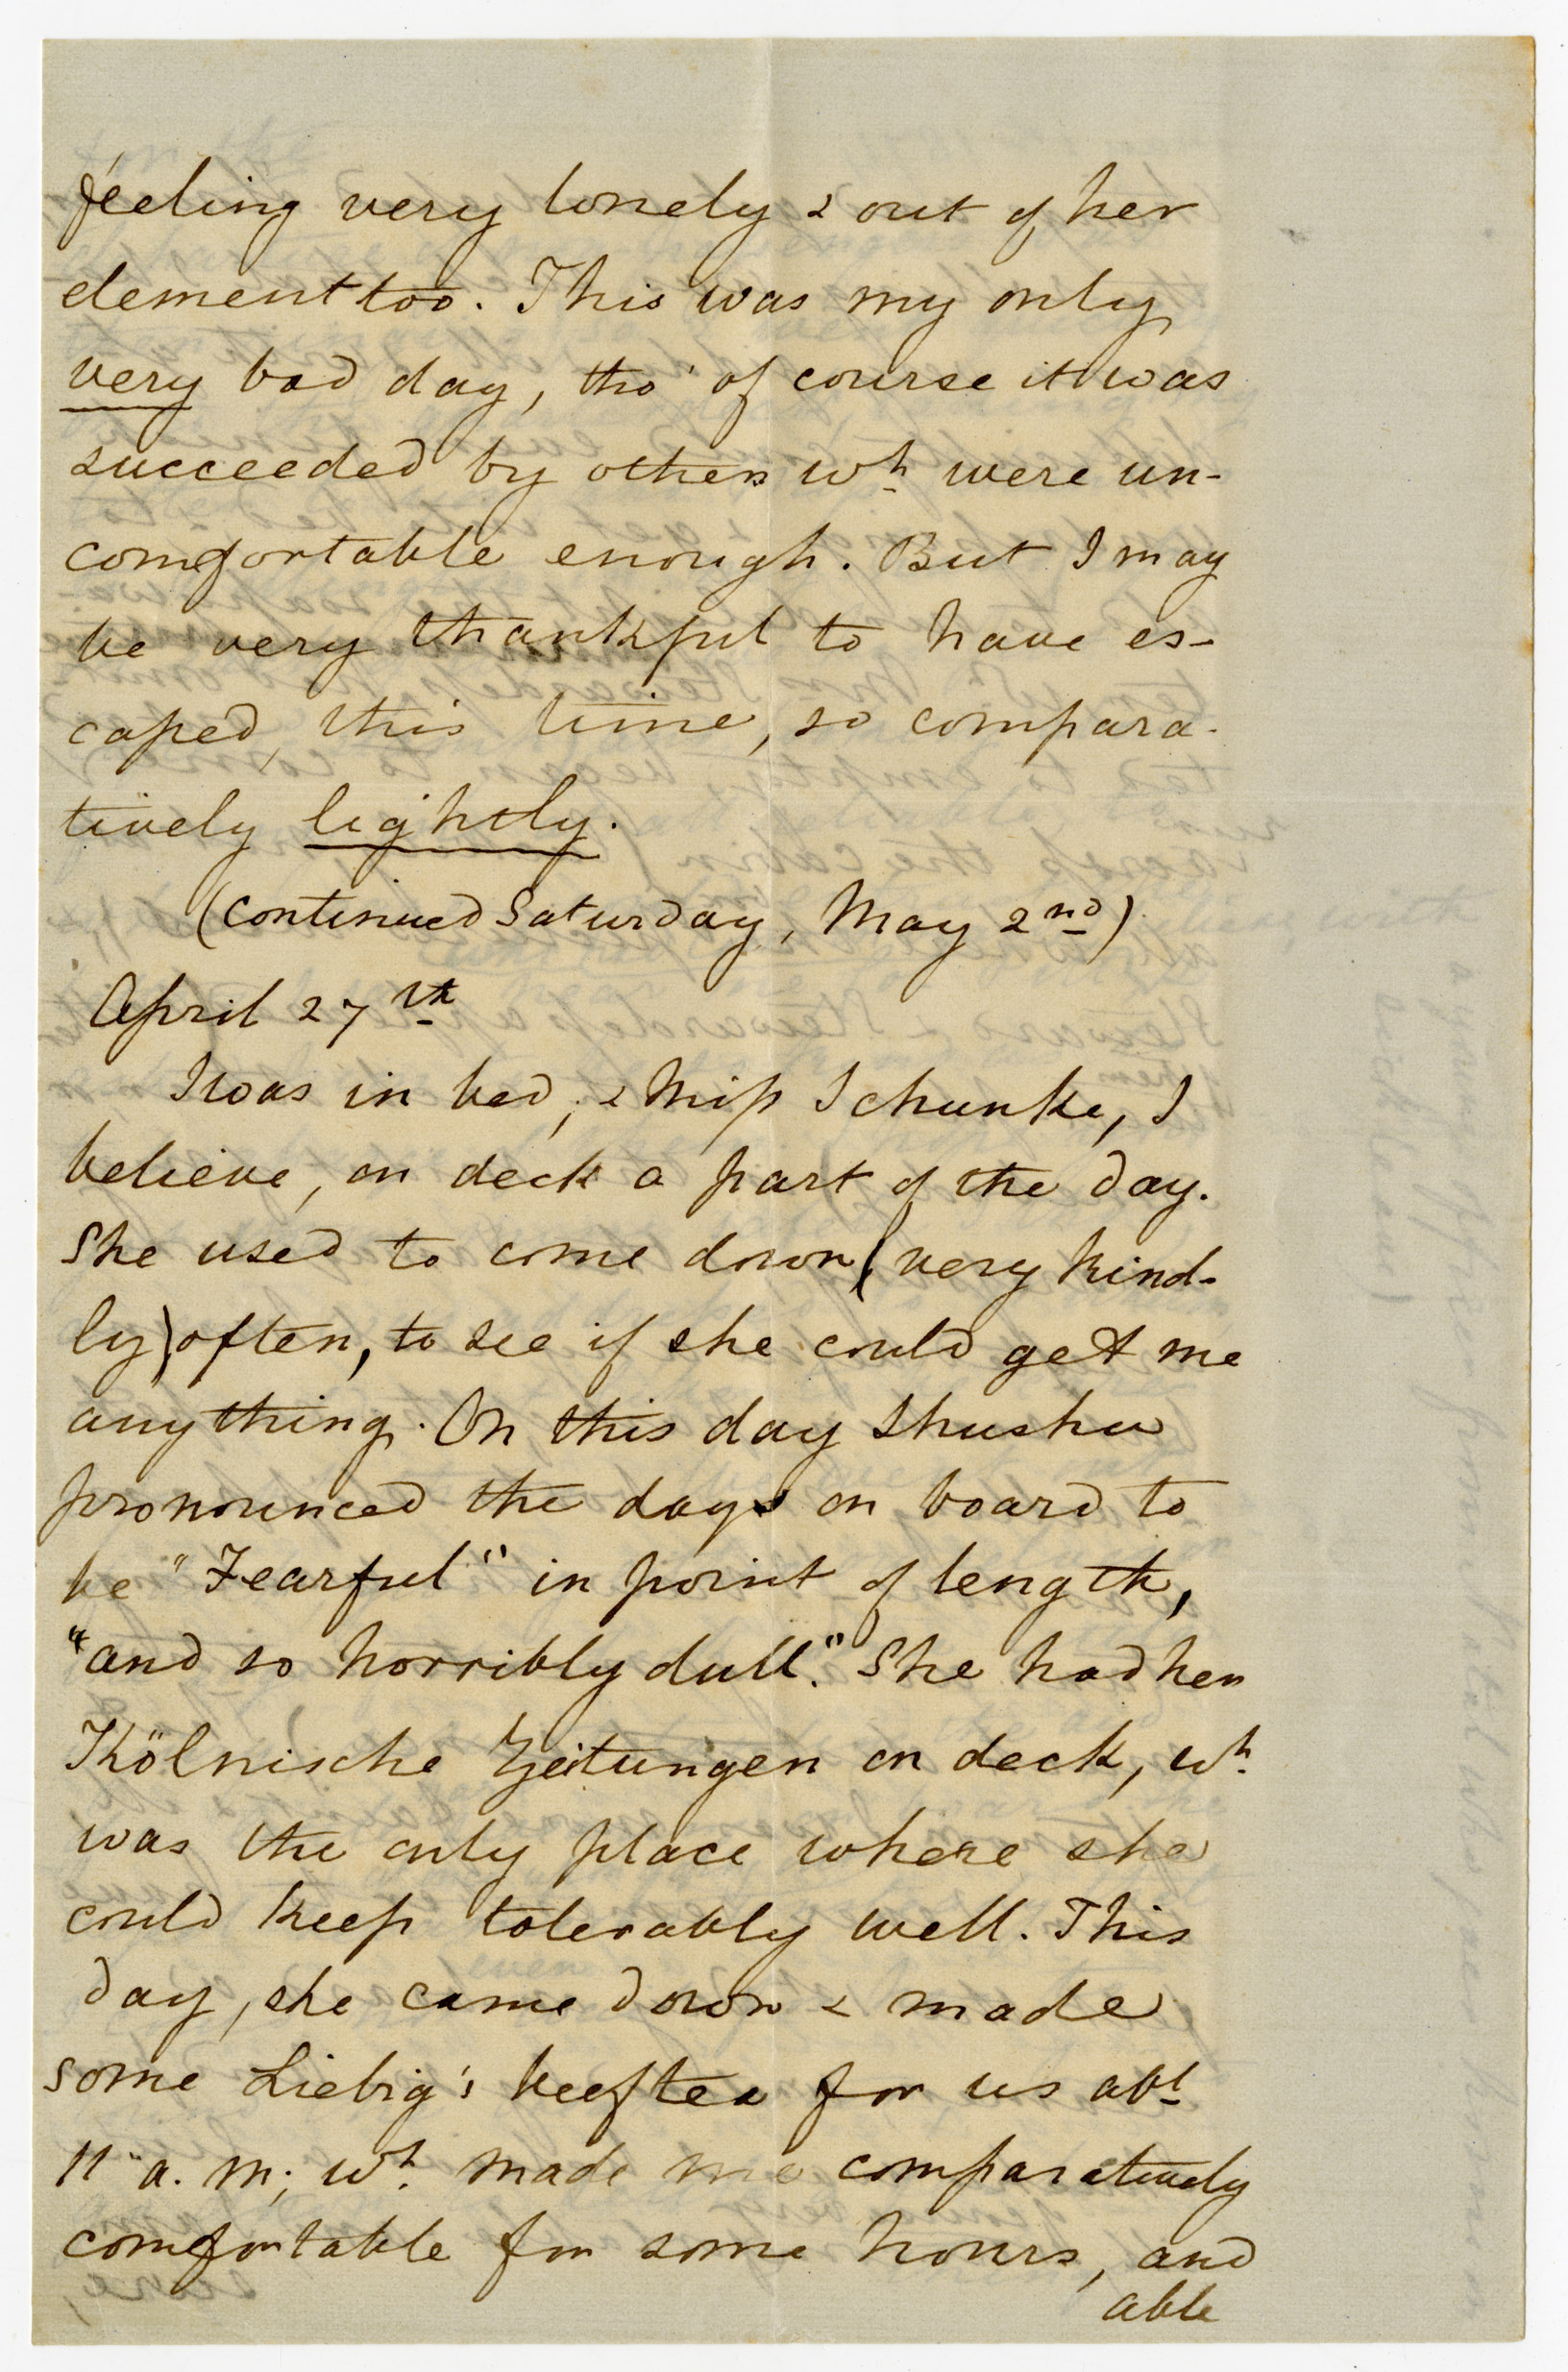 feeling very lonely & out of her
element too. This was my only
very bad day, tho' of course it was
succeeded by others wh. were un-
comfortable enough. But I may
be very thankful to have es-
caped, this time, so compara-
tively lightly.
(continued Saturday, May 2nd)
April 27th
I was in bed, & Miss Schunke, I
believe, on deck a part of the day.
She used to come down (very kind-
ly) often, to see if she could get me
anything. On this day she
pronounced the days on board to
be "Fearful" in point of length,
"and so horribly dull." She had her
Kölnische Zeitungen on deck, wh.
was the only place where she
could keep tolerably well. This
day, she came down & made
some Liebig's beeftea for us abt
11 a.m; wh. made me comparatively
comfortable for some hours, and
able